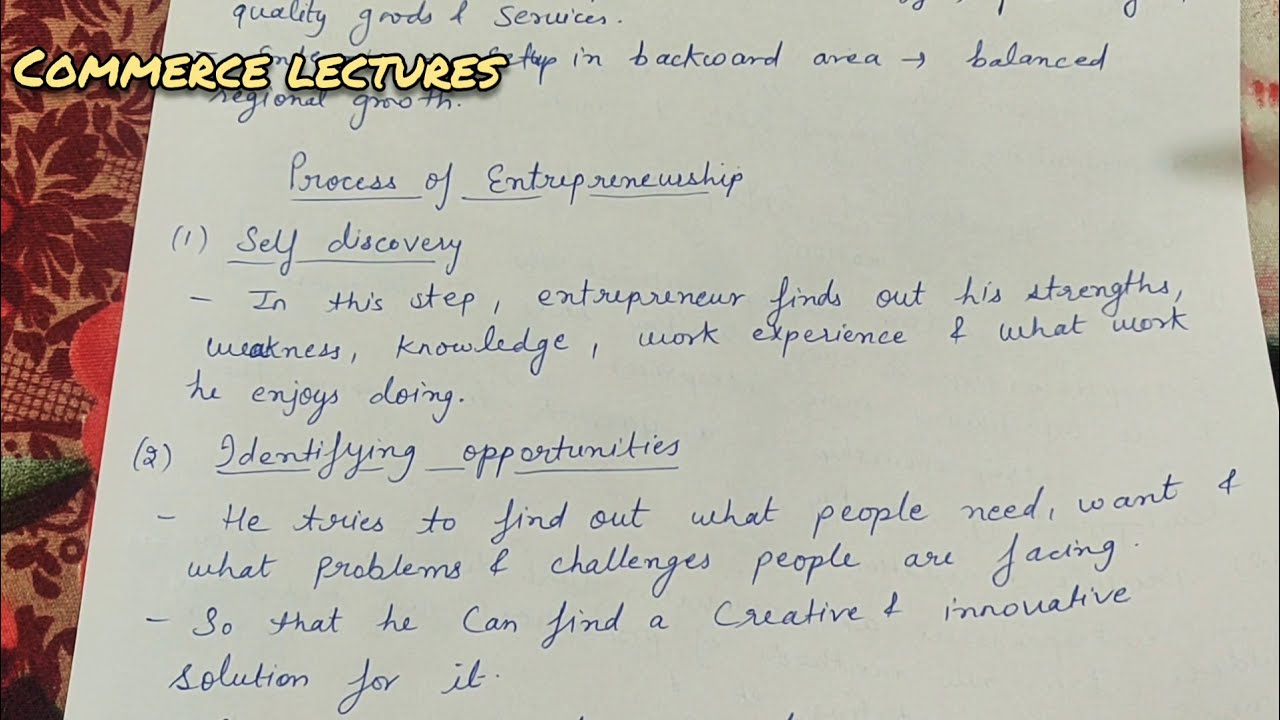 quality goods & services.
COMMERCE LECTURES
setup in backward area → balanced
regional growth.
Process of Entrepreneurship
(1) Self discovery
- In this step, entrepreneur finds out his strengths,
weakness, knowledge, work experience & what work
he enjoys doing.
(2) Identifying opportunities
- He tries to find out what people need, want &
what problems & challenges people are facing.
- So that he can find a creative & innovative
solution for it.